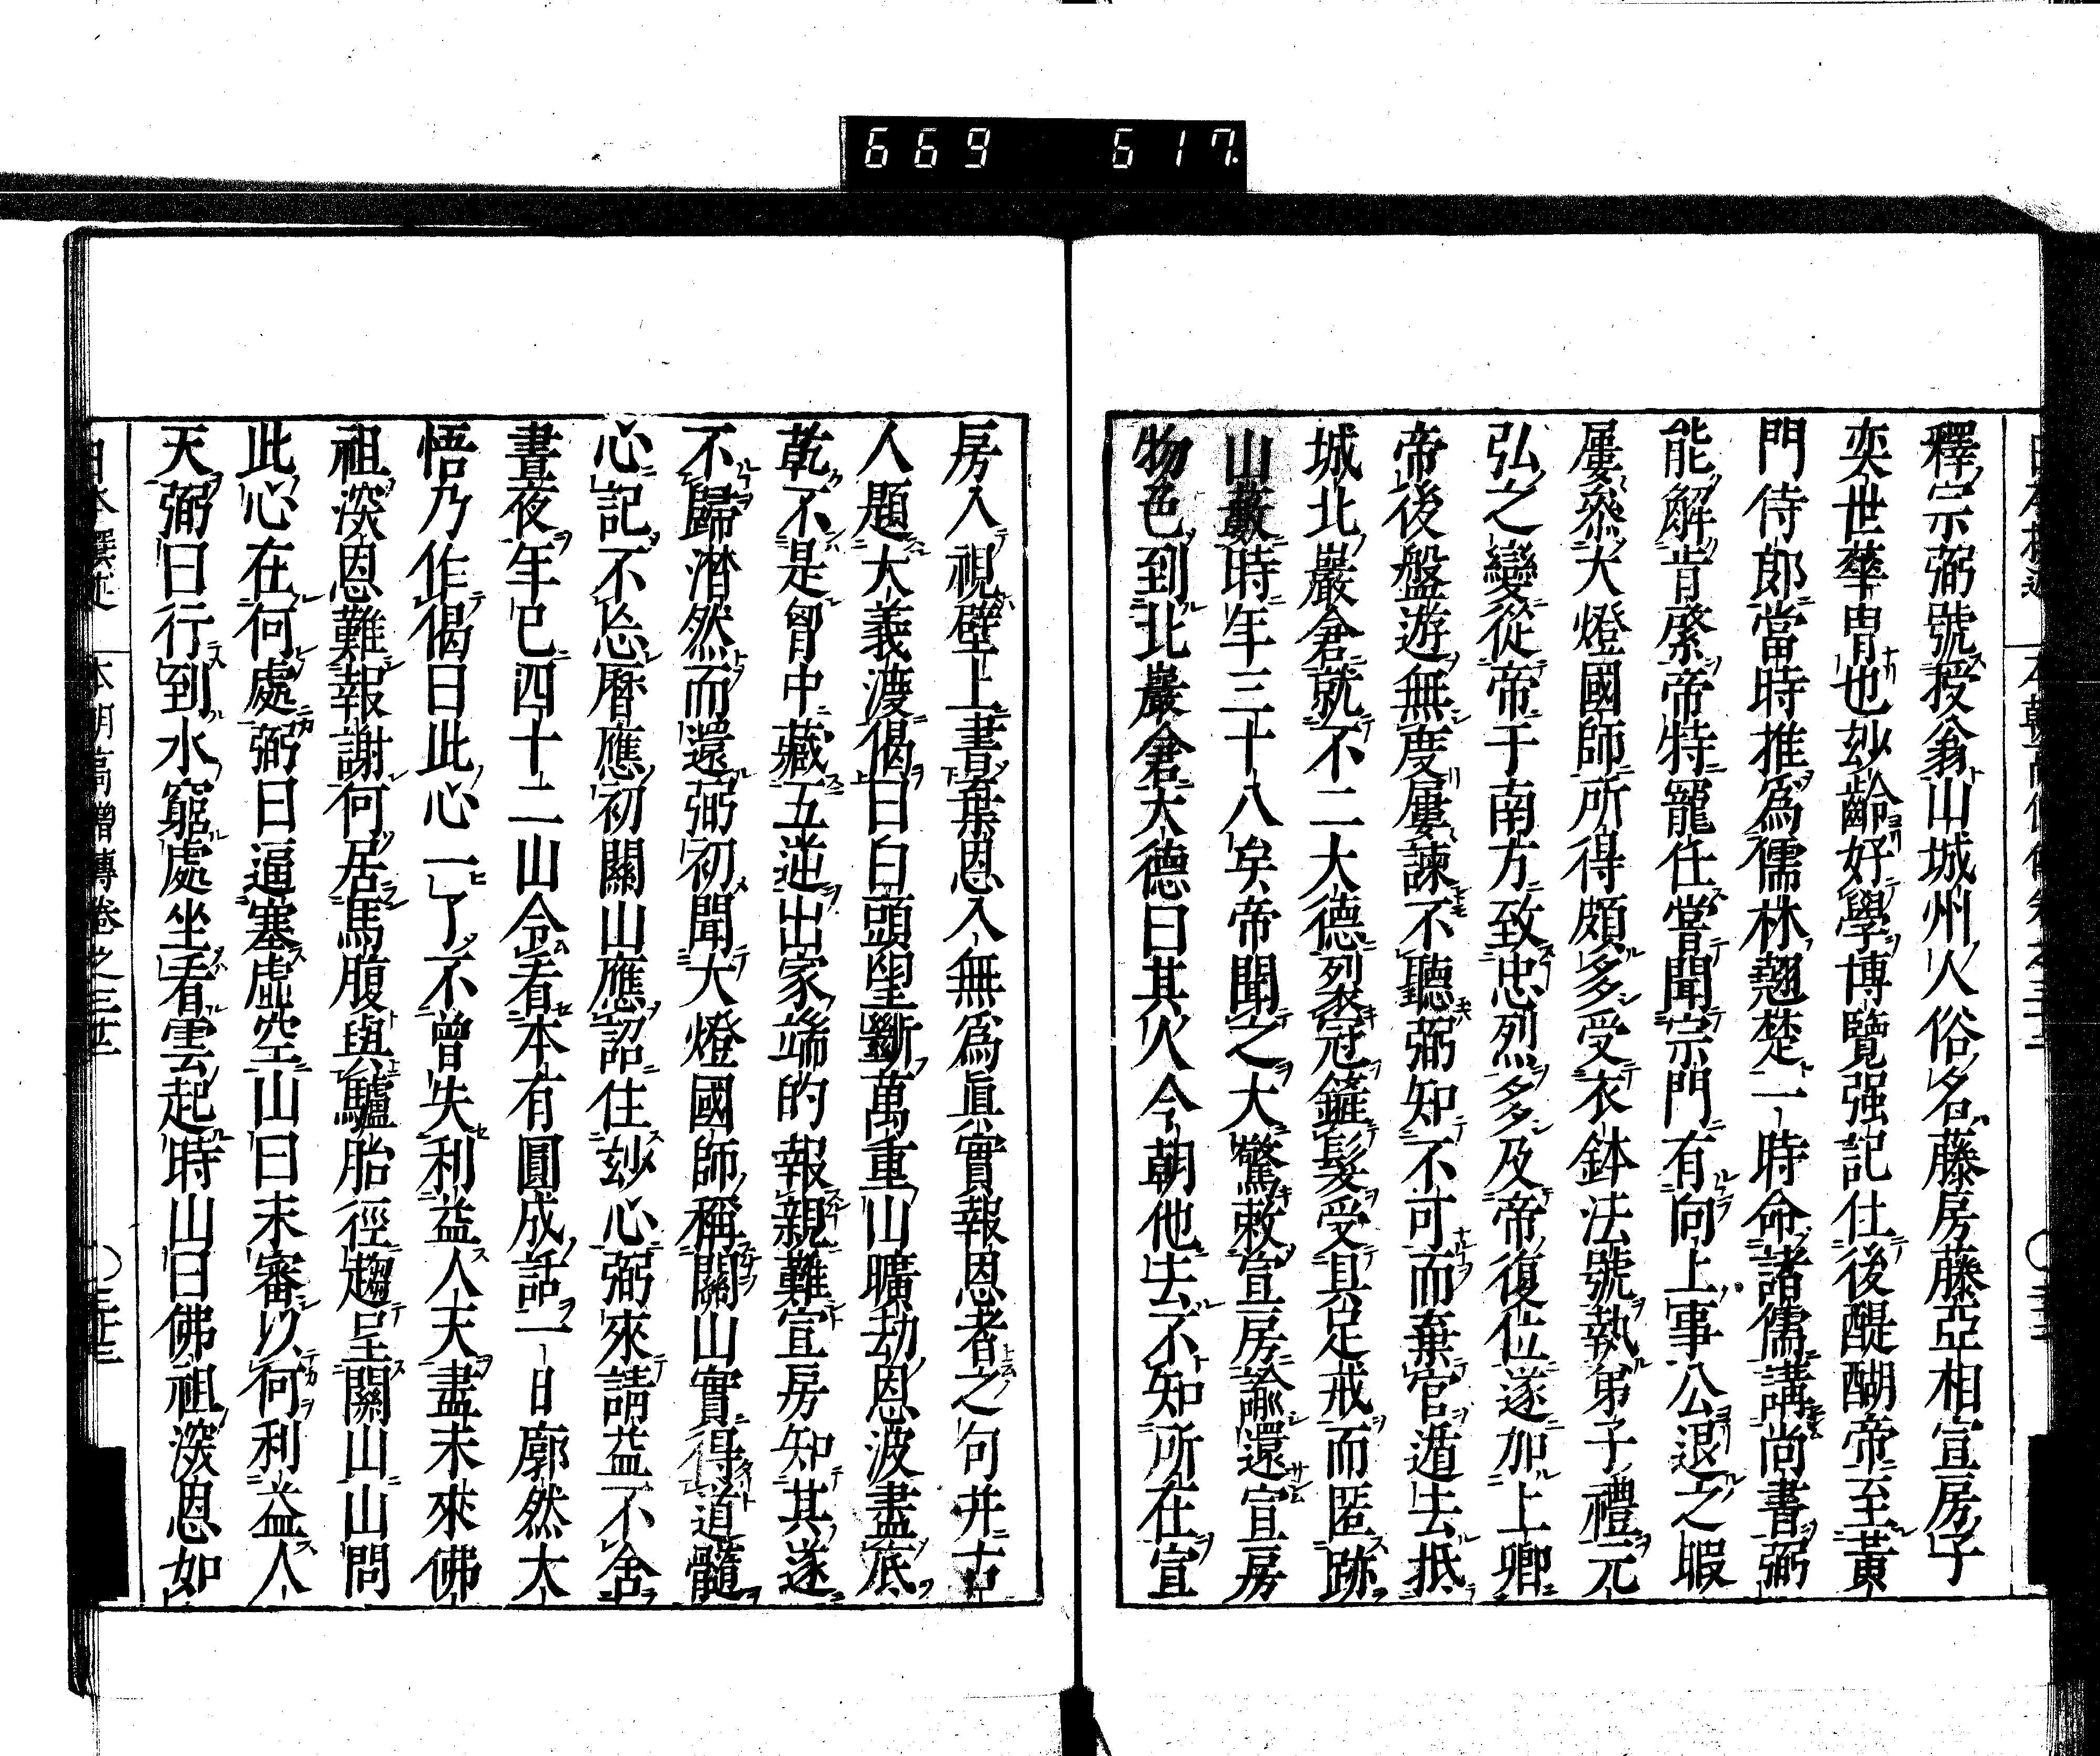 669 617.
釋宗弼號授翁山城州人俗名藤房藤亞相宣房子
奕世華冑也玅齡好學博覽强記仕後醍醐帝至黃
門侍郎當時推爲儒林翹楚一時命諸儒講尚書弼
能解肯綮帝特寵任嘗聞宗門有向上事公退之暇
屢叅大燈國師所得頗多受衣鉢法號執弟子禮元
弘之變從帝于南方致忠烈多及帝復位遂加上卿
帝後盤遊無度屢諫不聽弼知不可而棄官遁去抵
城北巖倉就不二大德裂冠鏟髮受具足戒而匿跡
山藪時年三十八矣帝聞之大驚敕宣房諭還宣房
物色到北巖倉大德曰其人今朝他去不知所在宣
房入視壁上書棄恩入無爲眞實報恩者之句并古
人題大義渡偈曰白頭望斷萬重山曠劫恩波盡底
乾不是胷中藏五逆出家端的報親難宣房知其遂
不歸潸然而還弼初聞大燈國師稱關山實得道髓
心記不忘曆應初關山應詔住玅心弼來請益不舍
晝夜年已四十二山令看本有圓成話一日廓然大
悟乃作偈曰此心一了不曾失利益人天盡未來佛
祖深恩難報謝何居馬腹與驢胎徑趨呈關山山問
此心在何處弼曰逼塞虛空山曰未審以何利益人
天弼曰行到水窮處坐看雲起時山曰佛祖深恩如
日本撰述 本朝高僧傳卷之三十二